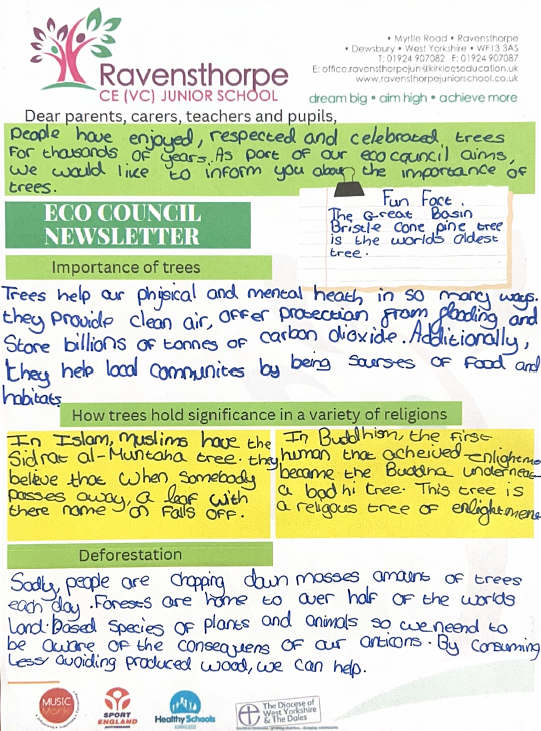 Ravensthorpe
CE (VC) JUNIOR SCHOOL
• Myrtle Road • Ravensthorpe
• Dewsbury • West Yorkshire • WF13 3AS
T: 01924 907082 F: 01924 907081
E: office.ravensthorpejun@kirkleeseducation.uk
www.ravensthorpejuniorschool.co.uk
dream big • aim high • achieve more
Dear parents, carers, teachers and pupils,
People have enjoyed, respected and celebrated trees
for thousands of years. As part of our eco council aims,
we would like to inform you about the importance of
trees.
ECO COUNCIL
NEWSLETTER
Fun Fact.
The Great Basin
Bristle Cone pine tree
is the worlds oldest
tree.
Importance of trees
Trees help our physical and mental heath in so many ways.
they provide clean air, offer protection from flooding and
Store billions of tonnes of carbon dioxide. Additionally,
they help local communities by being sourses of food and
habitats
How trees hold significance in a variety of religions
In Islam, Muslims have the
Sidrat al-Muntaha tree. they
believe that when somebody
passes away, a leaf with
there name on falls off.
In Buddhism, the first
human that acheived enlightme
became the Buddha undernea
a bodhi tree. This tree is
a religous tree of enlightment
Deforestation
Sadly, people are chopping down masses amount of trees
each day. Forests are home to over half of the worlds
Land-based species of plants and animals so we need to
be aware of the consequens of our anticons. By consuming
Less avoiding produced wood, we can help.
MUSIC
Mark
SPORT
ENGLAND
Healthy Schools
The Diocese of
West Yorkshire
& The Dales